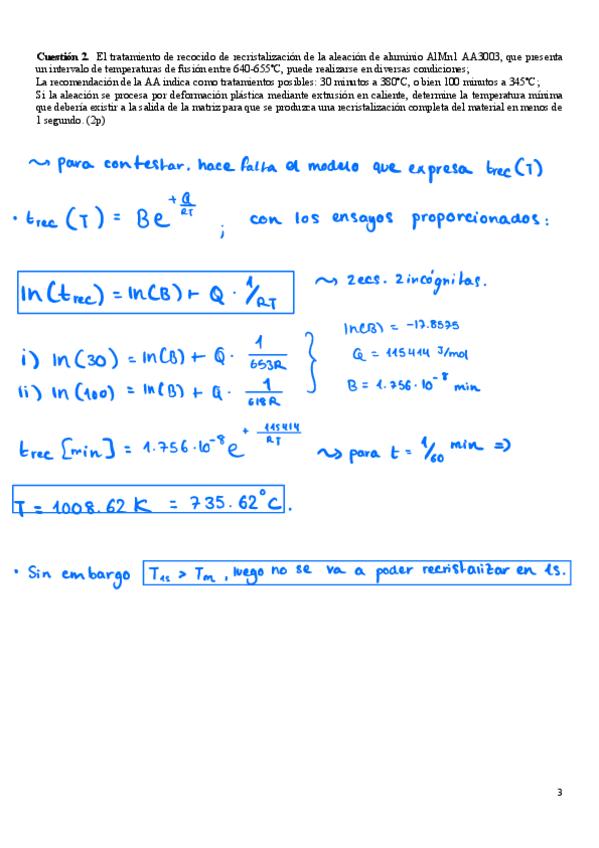 Cuestión 2. El tratamiento de recocido de recristalización de la aleación de aluminio AlMn1 AA3003, que presenta
un intervalo de temperaturas de fusión entre 640-655ºC, puede realizarse en diversas condiciones;
La recomendación de la AA indica como tratamientos posibles: 30 minutos a 380ºC, o bien 100 minutos a 345ºC;
Si la aleación se procesa por deformación plástica mediante extrusión en caliente, determine la temperatura mínima
que debería existir a la salida de la matriz para que se produzca una recristalización completa del material en menos de
1 segundo. (2p)
~> para contestar. hace falta el modelo que expresa trec(T)
• trec(T) = Be^(+Q/RT) ; con los ensayos proporcionados:
ln(trec) = ln(B) + Q · 1/RT ~> 2ecs. 2incógnitas.
i) ln(30) = ln(B) + Q · 1/653R
ii) ln(100) = ln(B) + Q · 1/618R
ln(B) = -17.8575
Q = 115414 J/mol
B = 1.756·10^-8 min
trec [min] = 1.756·10^-8 e^(+115414/RT) ~> para t = 1/60 min =>
T = 1008.62 K = 735.62°C.
• Sin embargo T1s > Tm, luego no se va a poder recristalizar en 1s.
3